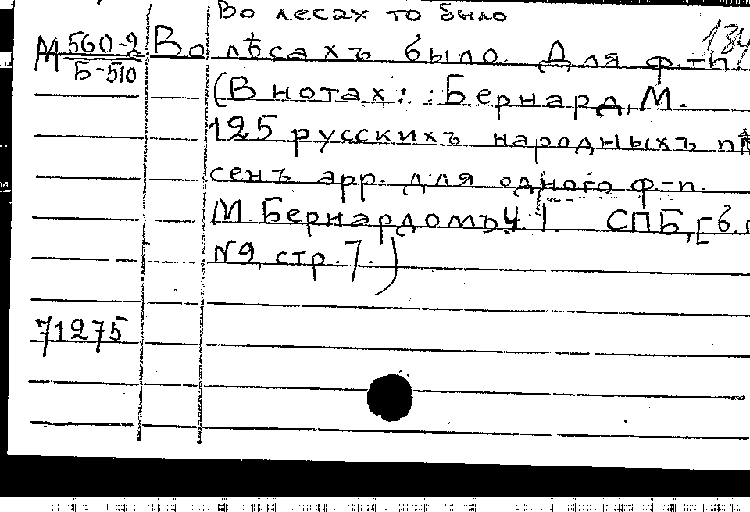 Во лесах то было
134
М 560-2 Во лѣсахъ было. Для ф.-п.
Б-510
(В нотах: Бернард, М.
125 русскихъ народныхъ пѣ
сенъ арр. для одного ф-п.
М. Бернардомъ Ч. I. СПБ, [б.
№9, стр. 7.)
71275